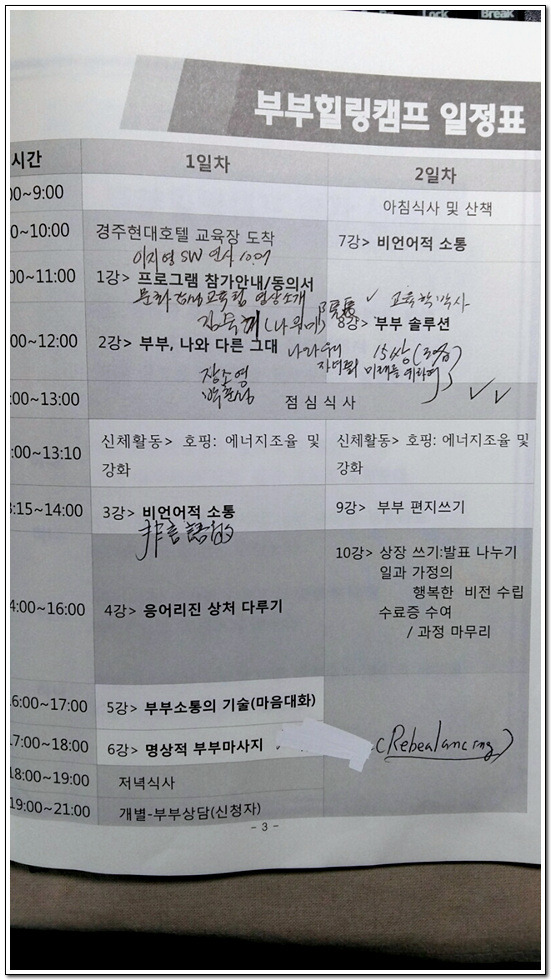 Lock
Break
부부힐링캠프 일정표
시간
1일차
2일차
00~9:00
아침식사 및 산책
0~10:00
경주현대호텔 교육장 도착
7강> 비언어적 소통
이지영 SW
00~11:00
1강> 프로그램 참가안내/동의서
교육학 박사
8강> 부부 솔루션
00~12:00
2강> 부부, 나와 다른 그대
15쌍
미래를 위하여
장소영
:00~13:00
점심식사
:00~13:10
신체활동> 호핑: 에너지조율 및
강화
신체활동> 호핑: 에너지조율 및
강화
3:15~14:00
3강> 비언어적 소통
9강> 부부 편지쓰기
非言語的
4:00~16:00
4강> 응어리진 상처 다루기
10강> 상장 쓰기:발표 나누기
일과 가정의
행복한 비전 수립
수료증 수여
/ 과정 마무리
16:00~17:00
5강> 부부소통의 기술(마음대화)
17:00~18:00
6강> 명상적 부부마사지
(Rebealancing)
18:00~19:00
저녁식사
19:00~21:00
개별-부부상담(신청자)
- 3 -